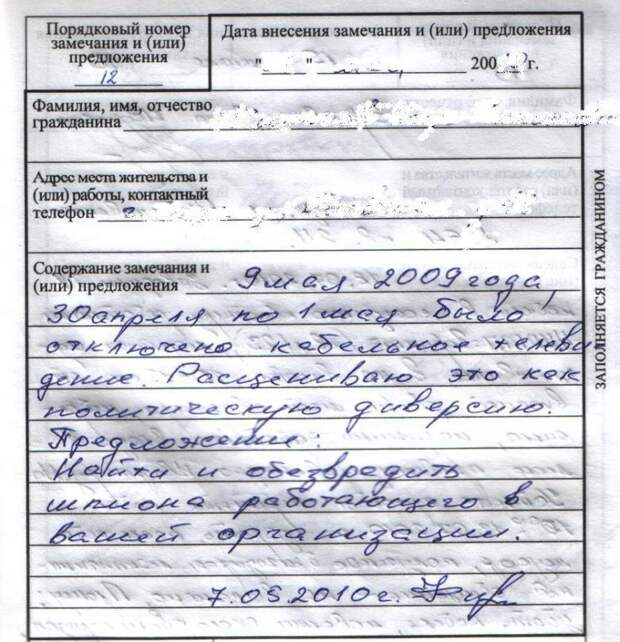 Порядковый номер
замечания и (или)
предложения
12
Дата внесения замечания и (или) предложения
" " 200 г.
Фамилия, имя, отчество
гражданина
Адрес места жительства и
(или) работы, контактный
телефон
Содержание замечания и
(или) предложения 9 мая 2009 года,
30 апреля по 1 мая было
отключено кабельное телеви
дение. Расцениваю это как
политическую диверсию.
Предложение:
Найти и обезвредить
шпиона работающего в
вашей организации.
7.05.2010 г.
ЗАПОЛНЯЕТСЯ ГРАЖДАНИНОМ